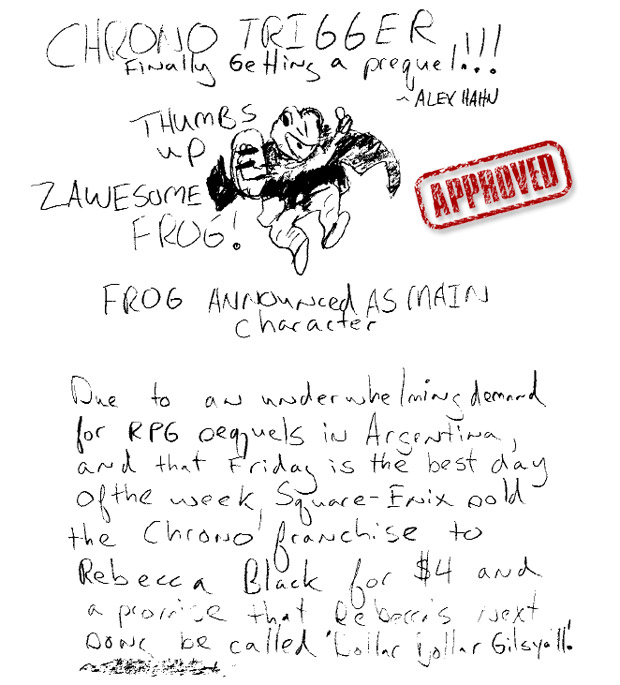 CHRONO TRIGGER
Finally Getting a prequel!!!
~ ALEX HAHN
THUMBS
UP
ZAWESOME
FROG!
APPROVED
FROG ANNOUNCED AS MAIN
character
Due to an underwhelming demand
for RPG sequels in Argentina,
and that Friday is the best day
of the week, Square-Enix sold
the Chrono franchise to
Rebecca Black for $4 and
a promise that Rebecca's next
song be called 'Dollar Dollar Gilsya'll!'